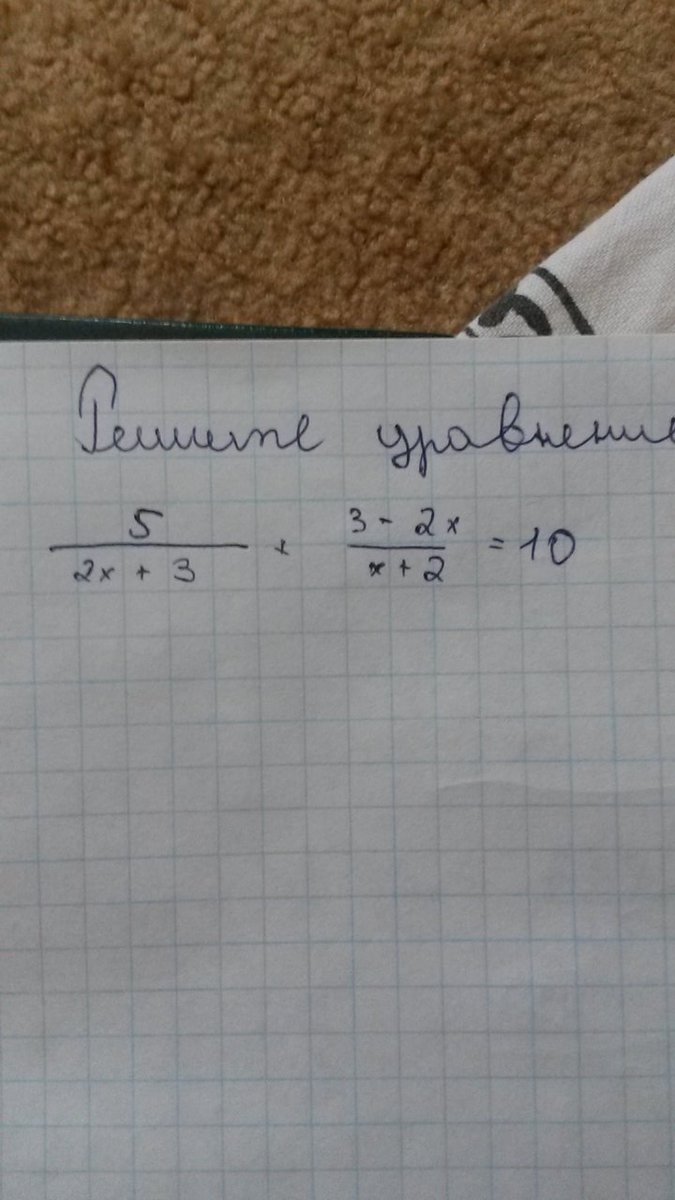 Решите уравнение
5/(2x + 3) + (3 - 2x)/(x + 2) = 10